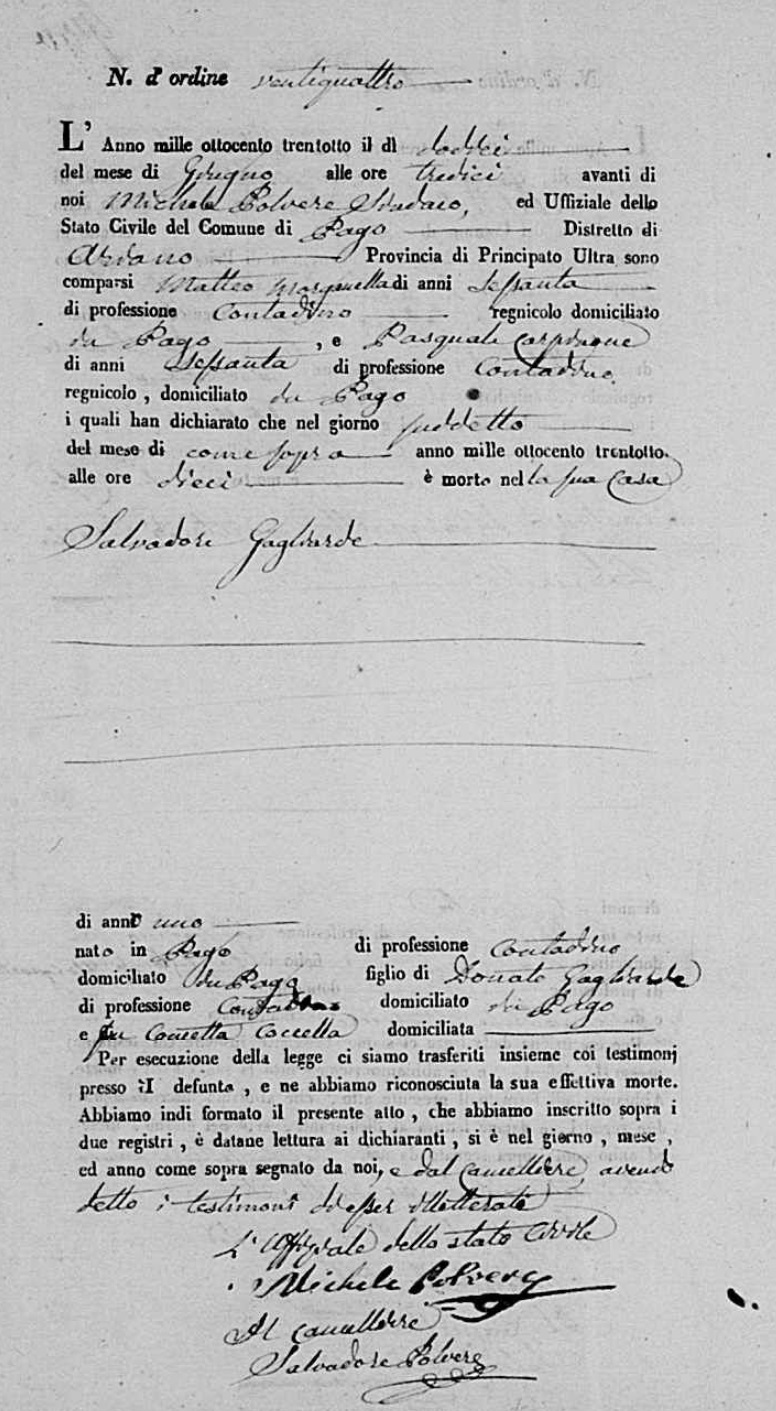 N. d'ordine ventiquattro
L' Anno mille ottocento trentotto il dì dodici
del mese di Giugno alle ore tredici avanti di
noi Michele Polvere Sindaco, ed Uffiziale dello
Stato Civile del Comune di Pago Distretto di
Ariano Provincia di Principato Ultra sono
comparsi Matteo di anni sessanta
di professione Contadino regnicolo domiciliato
in Pago , e Pasquale Carpinone
di anni sessanta di professione Contadino
regnicolo , domiciliato in Pago
i quali han dichiarato che nel giorno suddetto
del mese di come sopra anno mille ottocento trentotto.
alle ore dieci è morto nella sua Casa
Salvadore Gagliarde
di anno uno
nato in Pago di professione Contadino
domiciliato in Pago figlio di Donato Gagliarde
di professione Contadino domiciliato in Pago
e fu Concetta Coccella domiciliata
Per esecuzione della legge ci siamo trasferiti insieme coi testimonj
presso il defunto , e ne abbiamo riconosciuta la sua effettiva morte.
Abbiamo indi formato il presente atto , che abbiamo inscritto sopra i
due registri , è datane lettura ai dichiaranti , si è nel giorno , mese ,
ed anno come sopra segnato da noi, e dal Cancelliere, avendo
detto i testimoni di esser illetterati
L'Uffiziale dello stato Civile
Michele Polvere
Il Cancelliere
Salvadore Polvere